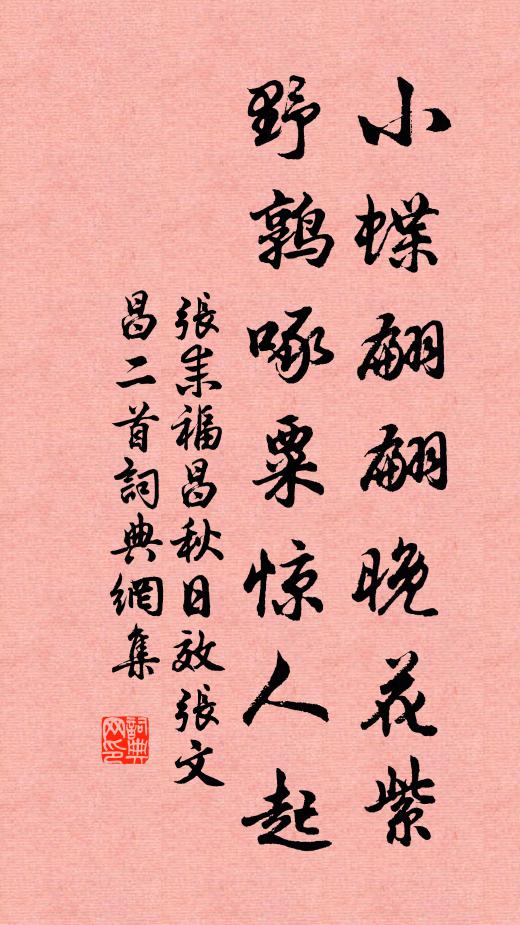 小蝶翩翩晚花紫
野鹑啄粟惊人起
張耒福昌秋日效張文
昌二首詞典網集
詞典網印